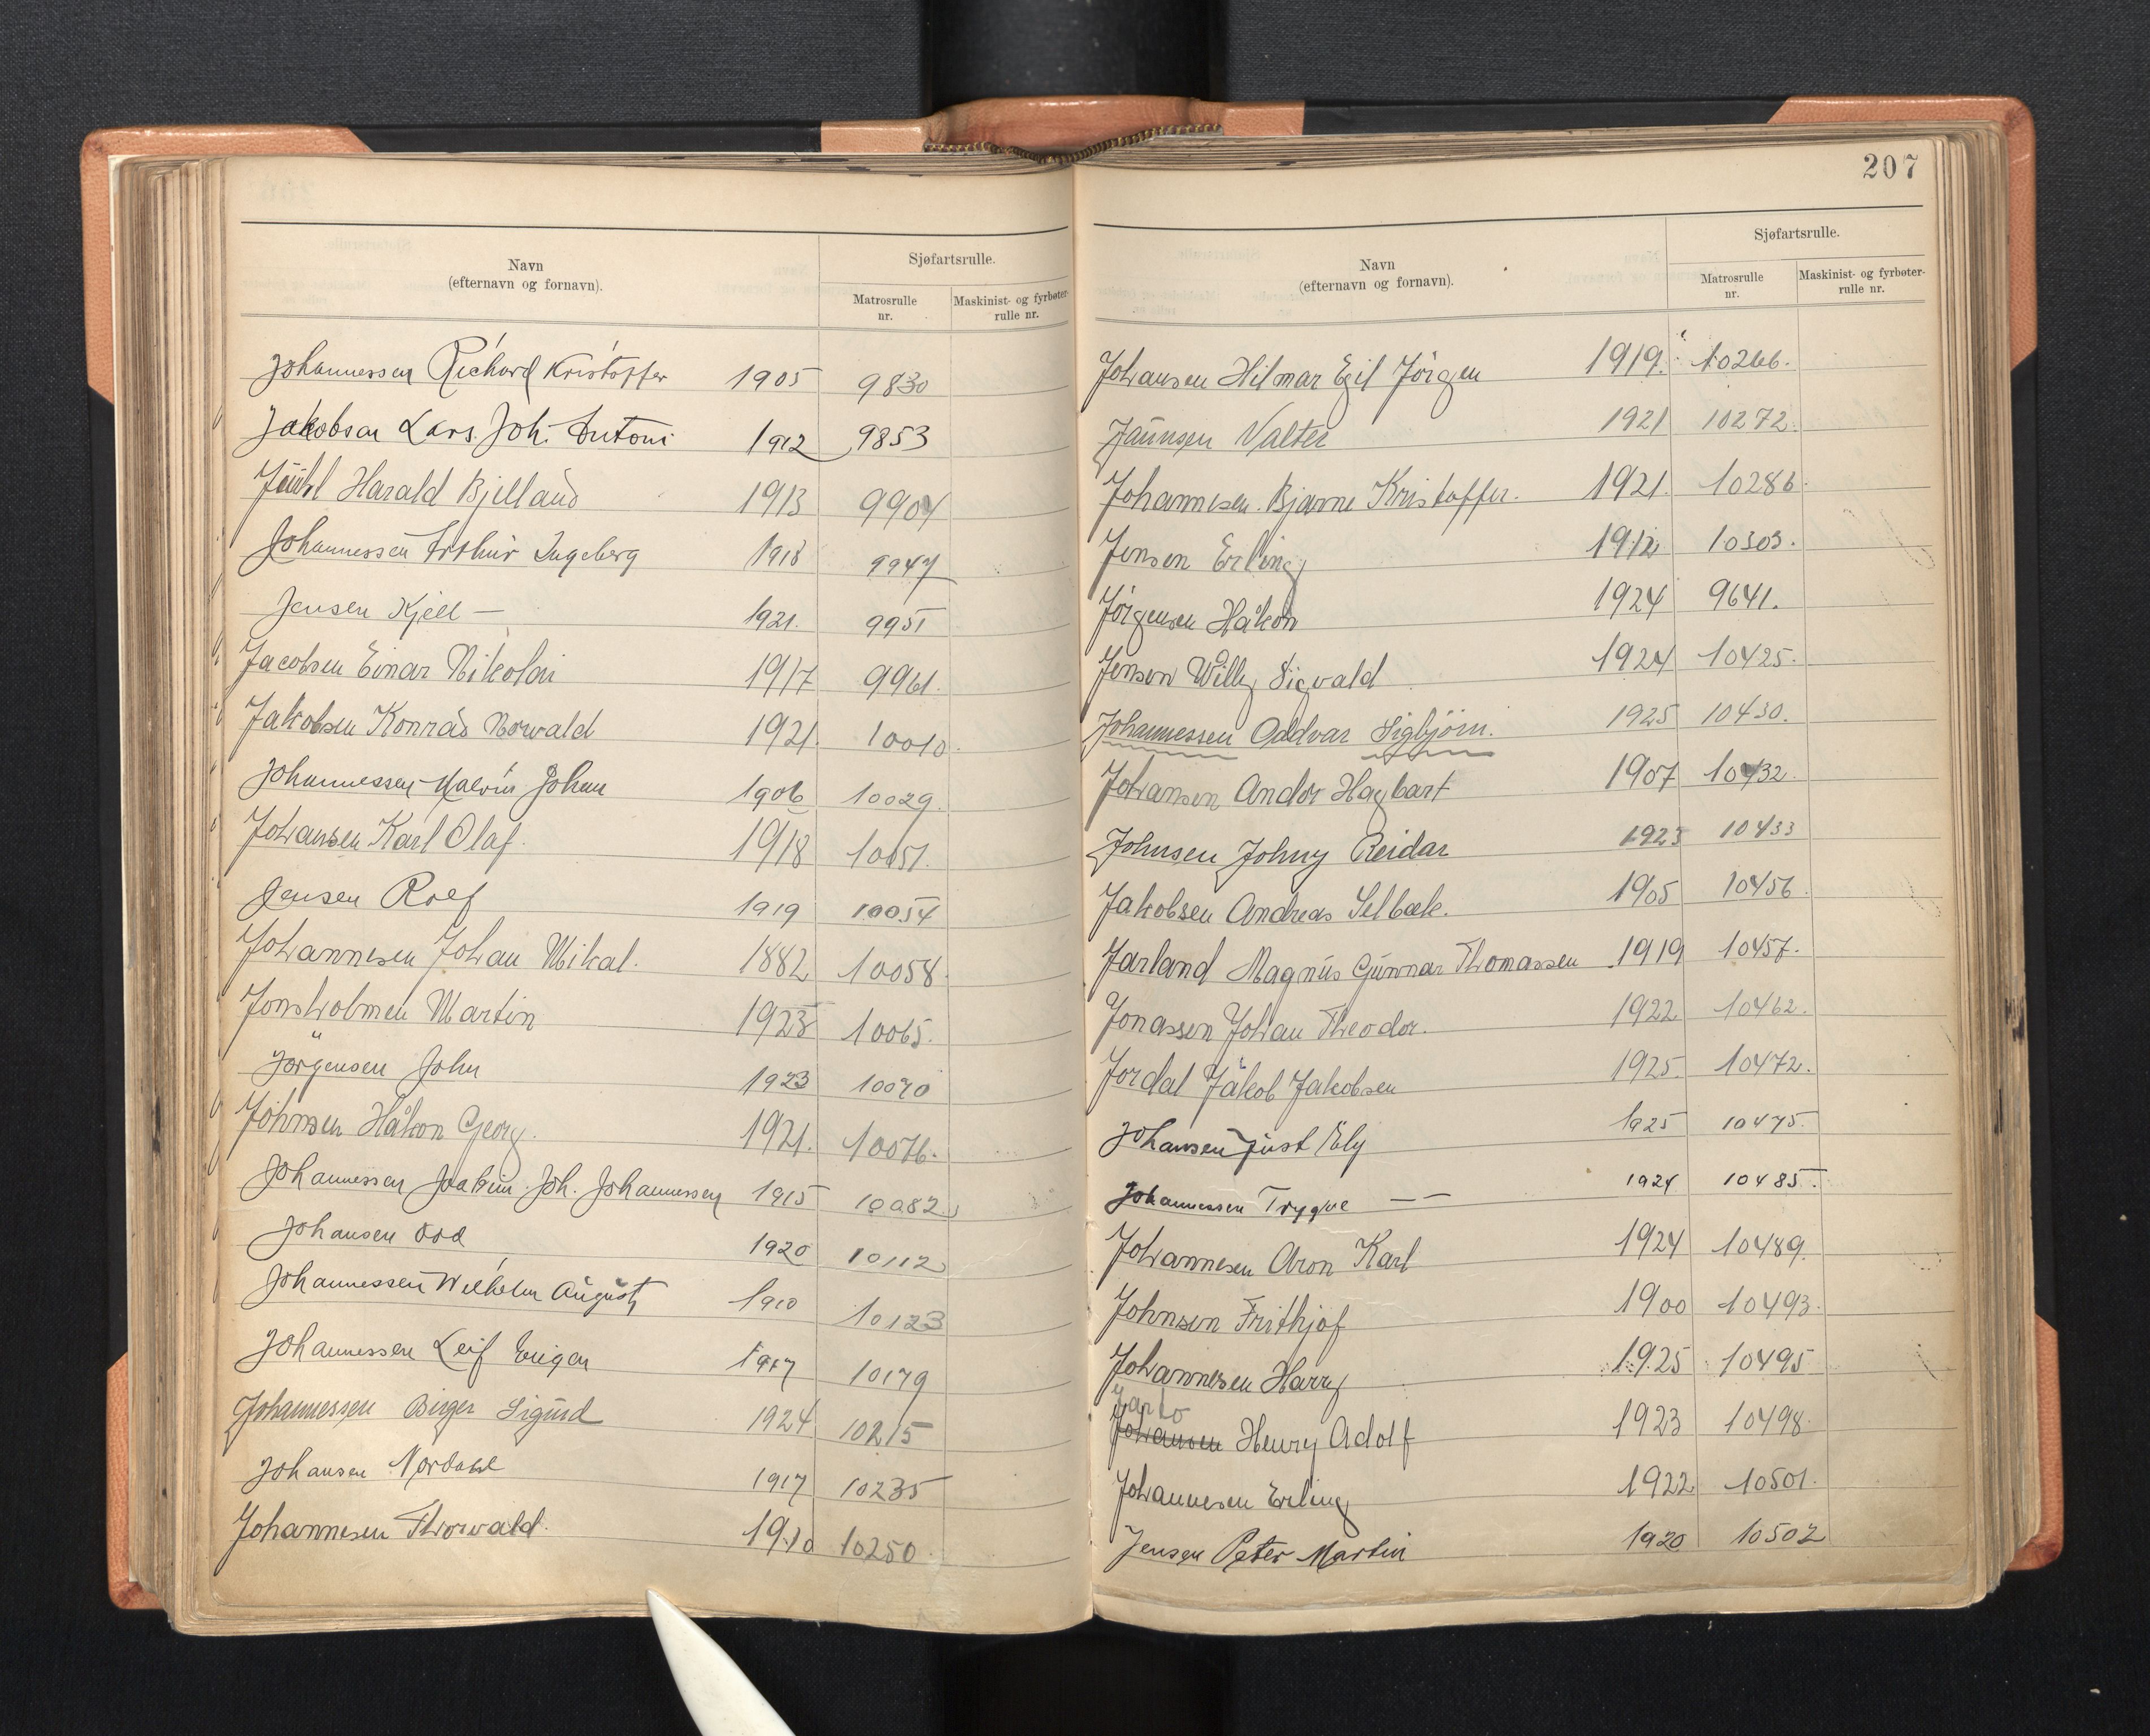 Navn
(efternavn og fornavn).
Sjøfartsrulle.
Matrosrulle
nr.
Maskinist- og fyrbøter-
rulle nr.
Johannessen Richard Kristoffer 1905 9830
Jakobsen Lars. Joh. Antoni 1912 9853
Juuhl Harald Bjelland 1913 9904
Johannessen Arthur Ingeberg 1918 9947
Jensen Kjell — 1921. 9951
Jacobsen Einar Nikolai 1917 9961.
Jakobsen Konrad Norvald 1921. 10010.
Johannessen Malvin Johan 1906 10029.
Johansen Karl Olaf. 1918 10051.
Jensen Rolf 1919 10054
Johannesen Johan Mikal. 1882 10058.
Jonsholmen Martin 10065.
Jørgensen John 1923 10070
Johnsen Håkon Georg. 1921. 10076.
Johannessen Joakim. Joh. Johannessen 1915 10082
Johansen Odd 1920 10112
Johannessen Wilhelm August 1910 10123
Johannessen Leif Eugen 1917 10179
Johannessen Birger Sigurd 1924 10215
Johansen Nordahl 1917 10235
Johannesen Thorvald. 1910 10250.
207
Navn
(efternavn og fornavn).
Sjøfartsrulle.
Matrosrulle
nr.
Maskinist- og fyrbøter-
rulle nr.
Johansen Hilmar Egil Jörgen 1919. 10266.
Jaunsen Valter 1921 10272.
Johannesen. Bjarne Kristoffer. 1921. 10286.
Jensen Erling 1912 10303.
Jörgensen Håkon 1924 9641.
Jensen Willy Sigvald 1924 10425.
Johannessen Oddvar Sigbjörn. 1925 10430.
Johansen Andor Hagbart 1907 10432.
Johnsen Johny Reidar 1923 10433
Jakobsen Andreas Selbæk. 1905 10456.
Jarland Magnus Gunnar Thomassen 1919 10457.
Jonassen Johan Theodor. 1922 10462.
Jordal Jakob Jakobsen 1925. 10472.
Johansen Just Ely 1925 10475.
Johannessen Trygve — — 1924 10485.
Johannesen Aron Karl 1924 10489.
Johnsen Frithjof 1900 10493.
Johannesen Harry 1925 10495
Jarbo
Johansen Henry Adolf 1923 10498.
Johannesen Erling 1922 10501.
Jensen Peter Martin 1920 10502